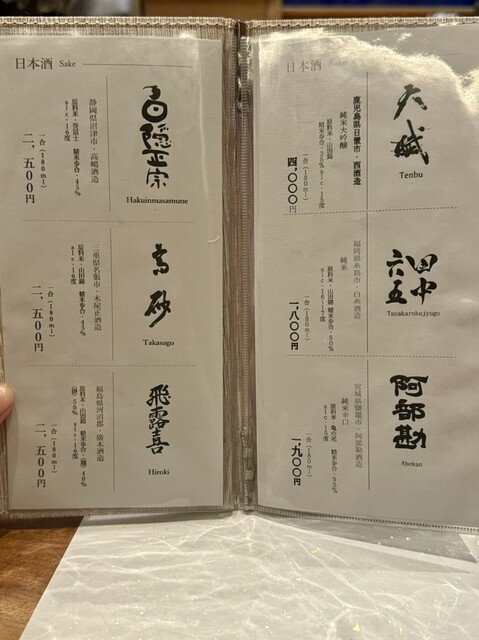 日本酒 Sake
白隠正宗
Hakuinmasamune
静岡県沼津市・高嶋酒造
原料米・誉富士 精米歩合・45%
alc・16度
一合(180ml)
二、五〇〇円
高砂
Takasago
三重県名張市・木屋正酒造
原料米・山田錦 精米歩合・45%
alc・16度
一合(180ml)
二、五〇〇円
飛露喜
Hiroki
福島県河沼郡・廣木酒造
原料米・山田錦 精米歩合・(麹)40%
(掛)50% alc・16度
一合(180ml)
二、五〇〇円
日本酒 Sake
天賦
Tenbu
鹿児島県日置市・西酒造
純米大吟醸
原料米・山田錦
精米歩合・35% alc・15度
一合(180ml)
四、〇〇〇円
田中六五
Tanakarokujyugo
福岡県糸島市・白糸酒造
純米
原料米・山田錦 精米歩合・50%
alc・16-17度
一合(180ml)
一、八〇〇円
阿部勘
Abekan
宮城県鹽竈市・阿部勘酒造
純米辛口
原料米・亀の尾 精米歩合・55%
alc・15度
一合(180ml)
一、九〇〇円